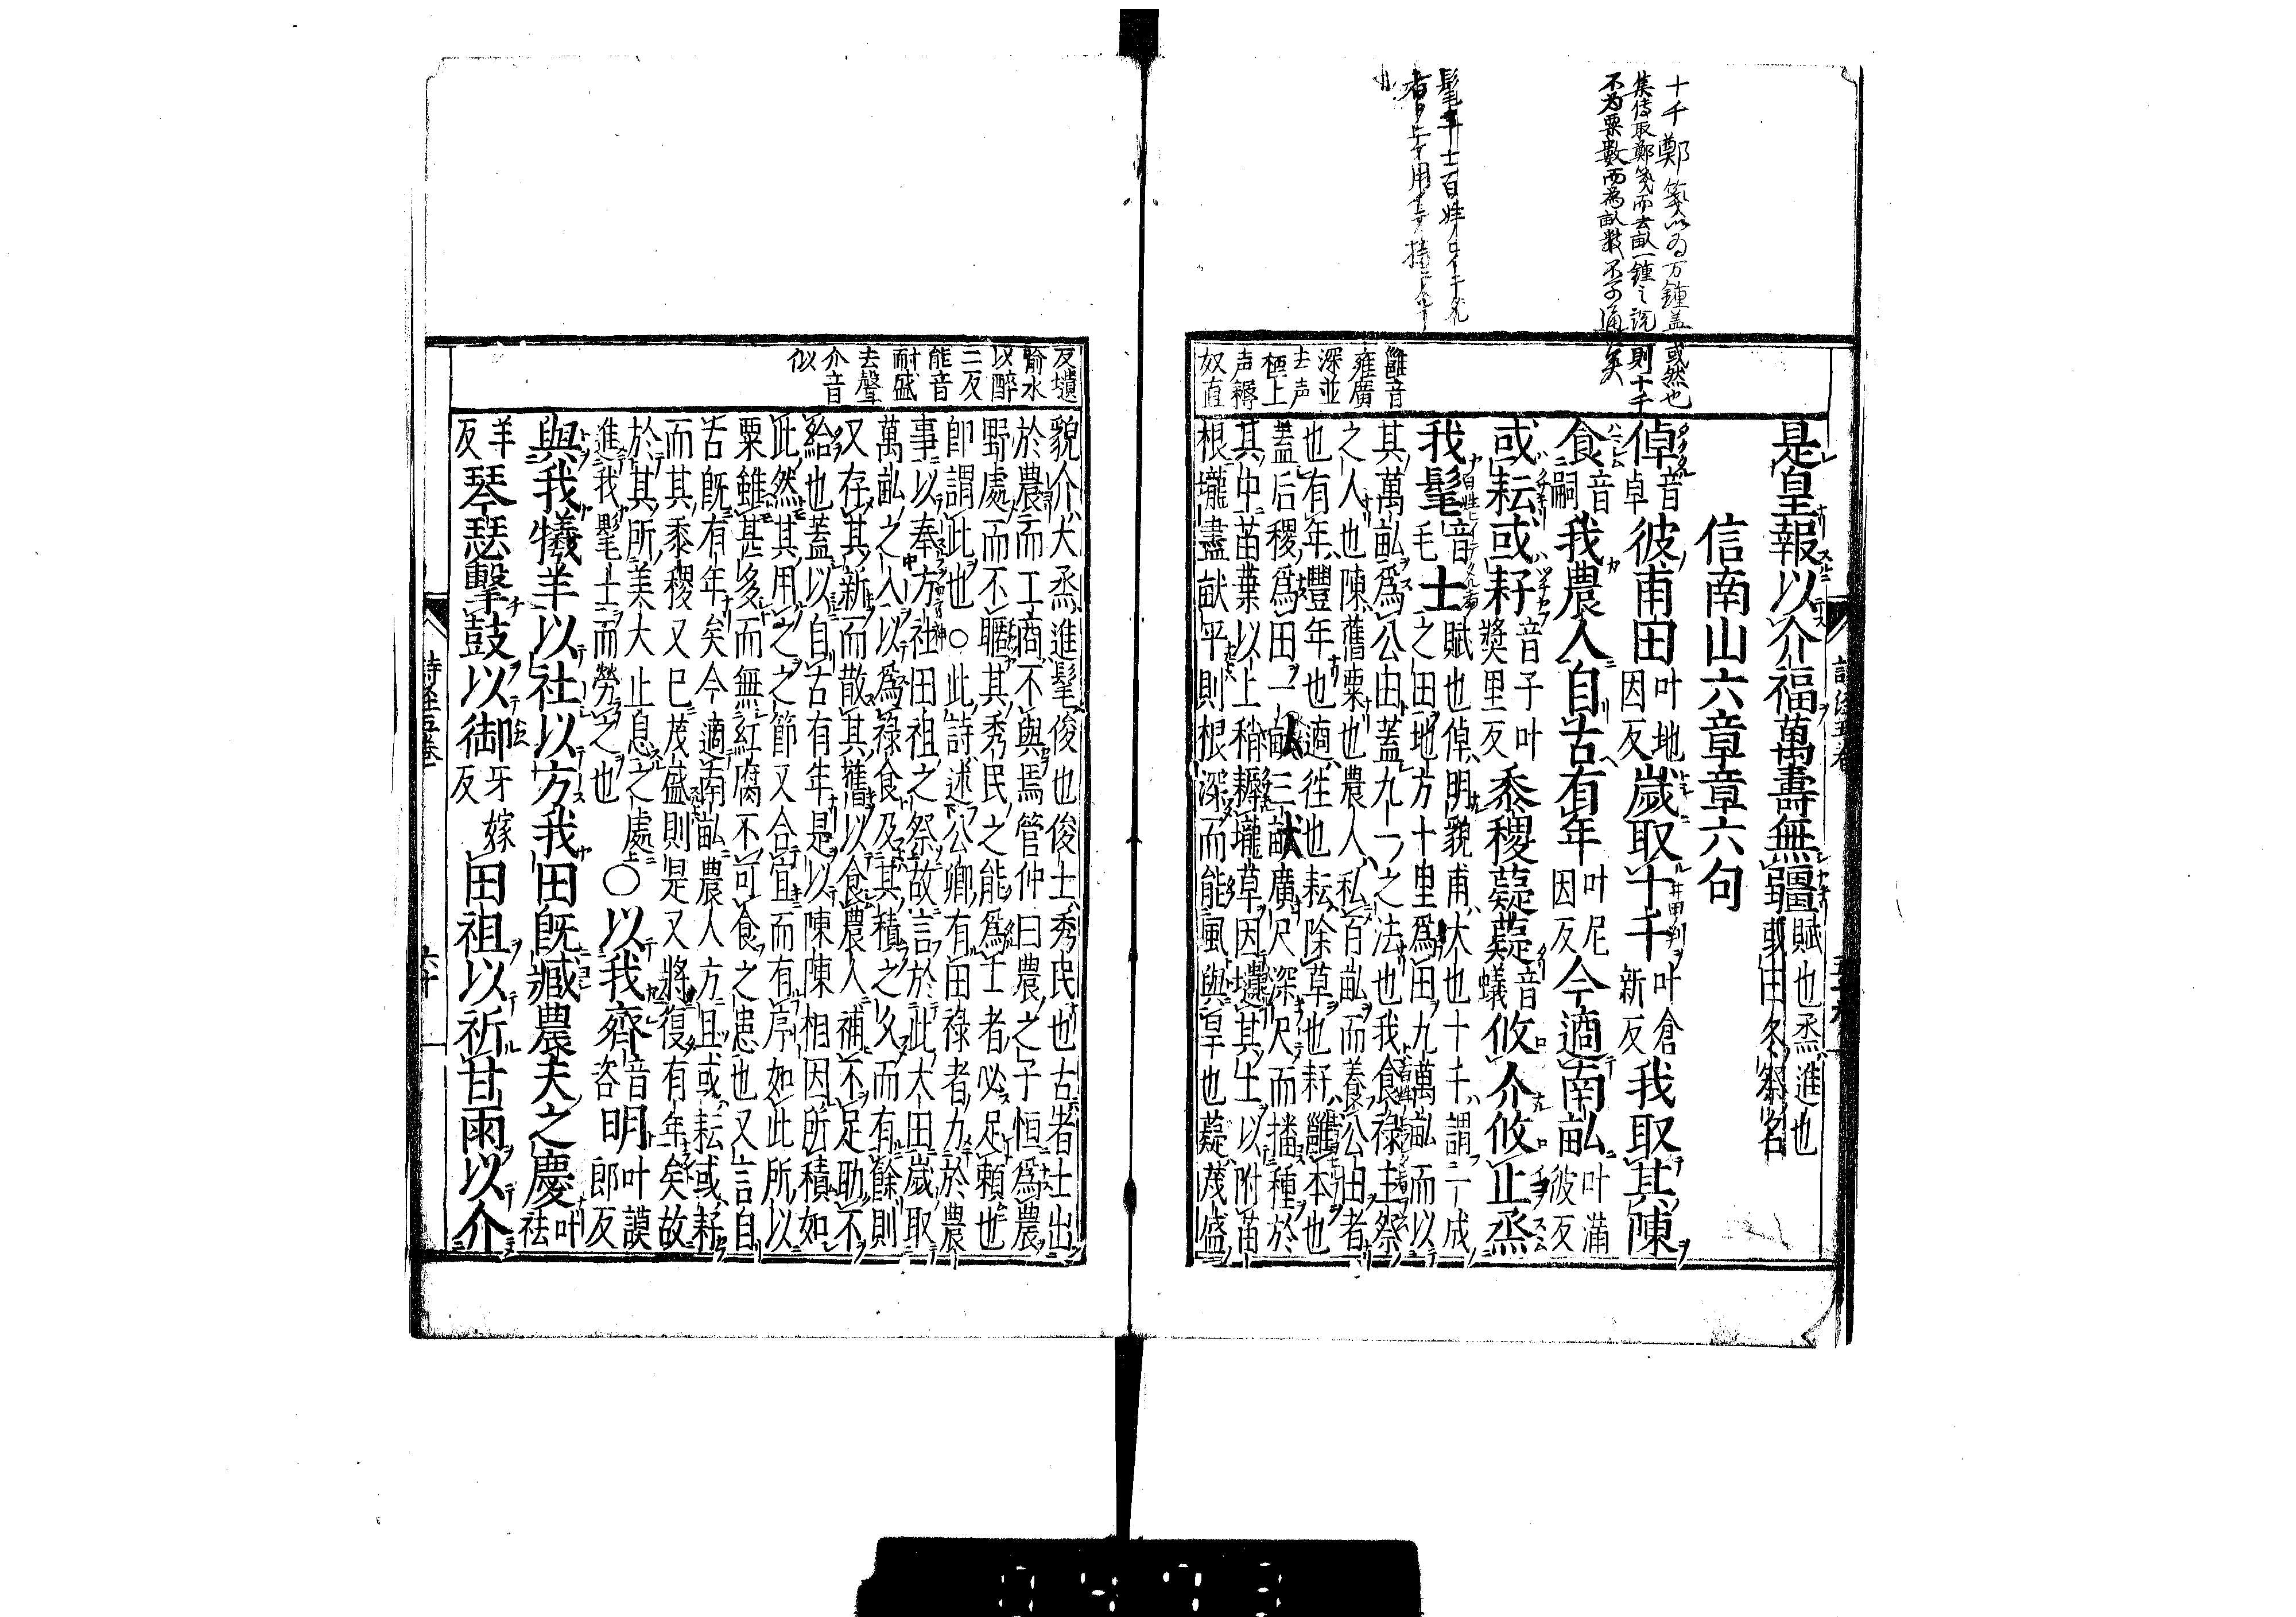 十千鄭箋以为万鍾盖或然也
集传取鄭箋而去畝一鍾之説則十千
不为粟數而為畝數不可通矣
雝音
雍廣
深並
去声
梗上
声耨
奴直
是皇報以介福萬壽無疆賦也烝進也
或曰冬祭名
信南山六章章六句
倬音卓彼甫田叶地因反歲取十千叶倉新反我取其陳
食音嗣我農人自古有年叶尼因反今適南畝叶滿彼反
或耘或耔音子叶奬里反黍稷薿薿音蟻攸介攸止烝
我髦音毛士賦也倬明貌甫大也十千謂一成
之田地方十里爲田九萬畝而以
其萬畝爲公田蓋九一之法也我食祿主祭
之人也陳舊粟也農人私百畝而養公田者
也有年豐年也適往也耘除草也耔雝本也
蓋后稷爲田一畝三畎廣尺深尺而播種於
其中苗葉以上稍耨壠草因壝其土以附苗
根壠盡畎平則根深而能風與旱也薿茂盛
反壝
喻水
以醉
三反
能音
耐盛
去聲
介音
似
貌介大烝進髦俊也俊士秀民也古者士出
於農而工商不與焉管仲曰農之子恒爲農
野處而不暱其秀民之能爲士者必足賴也
即謂此也○此詩述公卿有田祿者力於農
事以奉方社田祖之祭故言於此大田歲取
萬畝之入以爲祿食及其積之久而有餘則
又存其新而散其舊以食農人補不足助不
給也蓋以自古有年是以陳陳相因所積如
此然其用之之節又合宜而有序如此所以
粟雖甚多而無紅腐不可食之患也又言自
古既有年矣今適南畝農人方且或耘或耔
而其黍稷又已茂盛則是又將復有年矣故
於其所美大止息之處
進我髦士而勞之也○以我齊音咨明叶謨郎反
與我犧羊以社以方我田既臧農夫之慶叶祛
羊反琴瑟擊鼓以御牙嫁反田祖以祈甘雨以介
詩經五卷
六十一